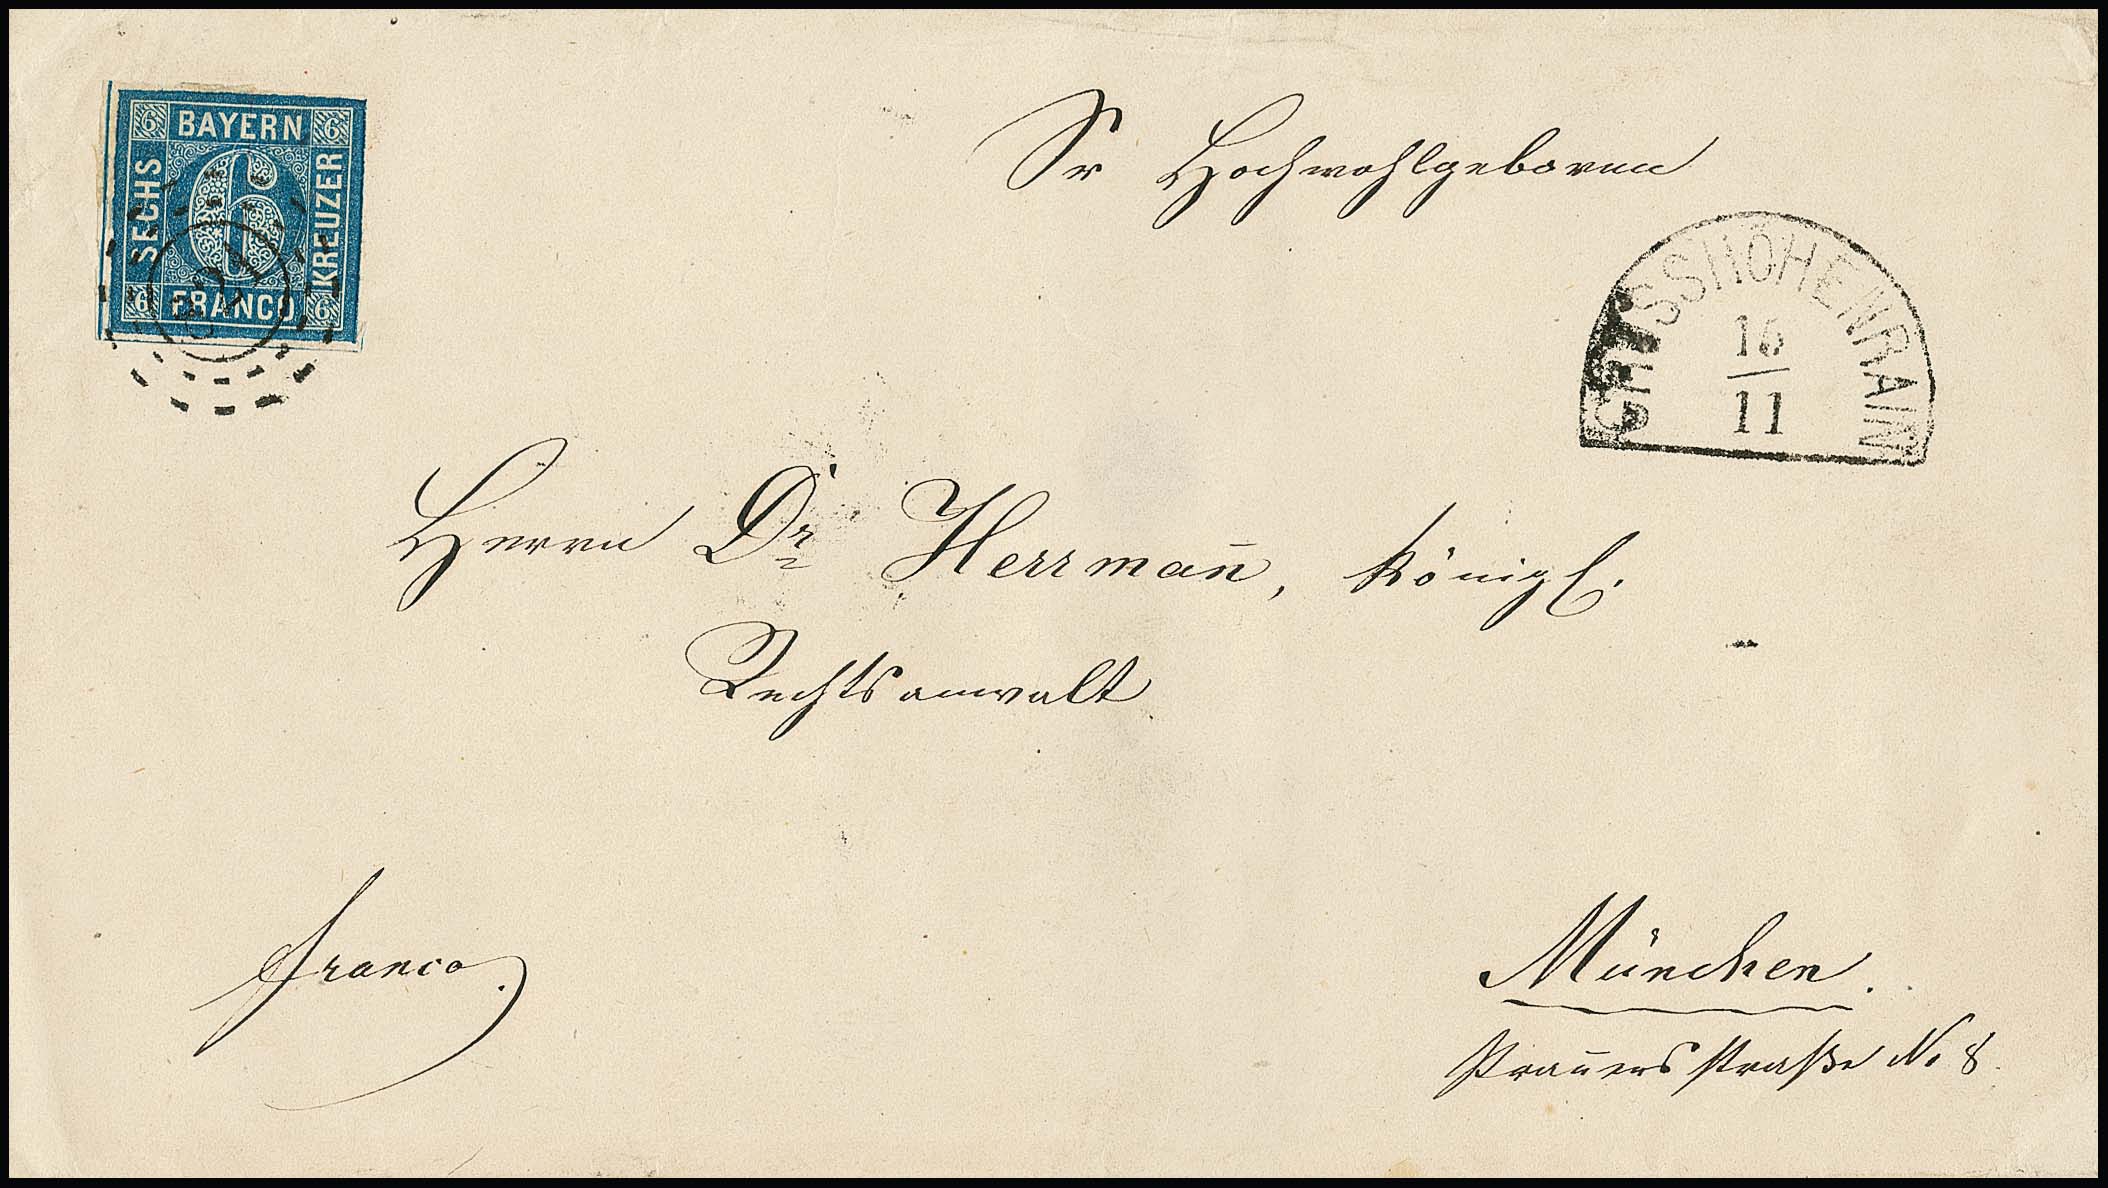 BAYERN
SECHS
KREUZER
FRANCO
6
6
6
6
6
Sr Hochwohlgeboren
GROSSHÖHENRAIN
16
11
Herrn Dr Herrman̄, Königl.
Rechtsanwalt
franco.
München.
Pran̄ersstraße No 8.